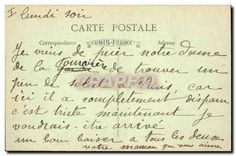 lundi soir
CARTE POSTALE
Correspondance
CENIS-FRANCE
Adresse
Je viens de prier notre dame
de la de trouver un
peu de soleil à car
ici il a complètement disparu
c'est triste maintenant je
voudrais être arrivé
un bon baiser à tous les deux
votre maman qui vous aime